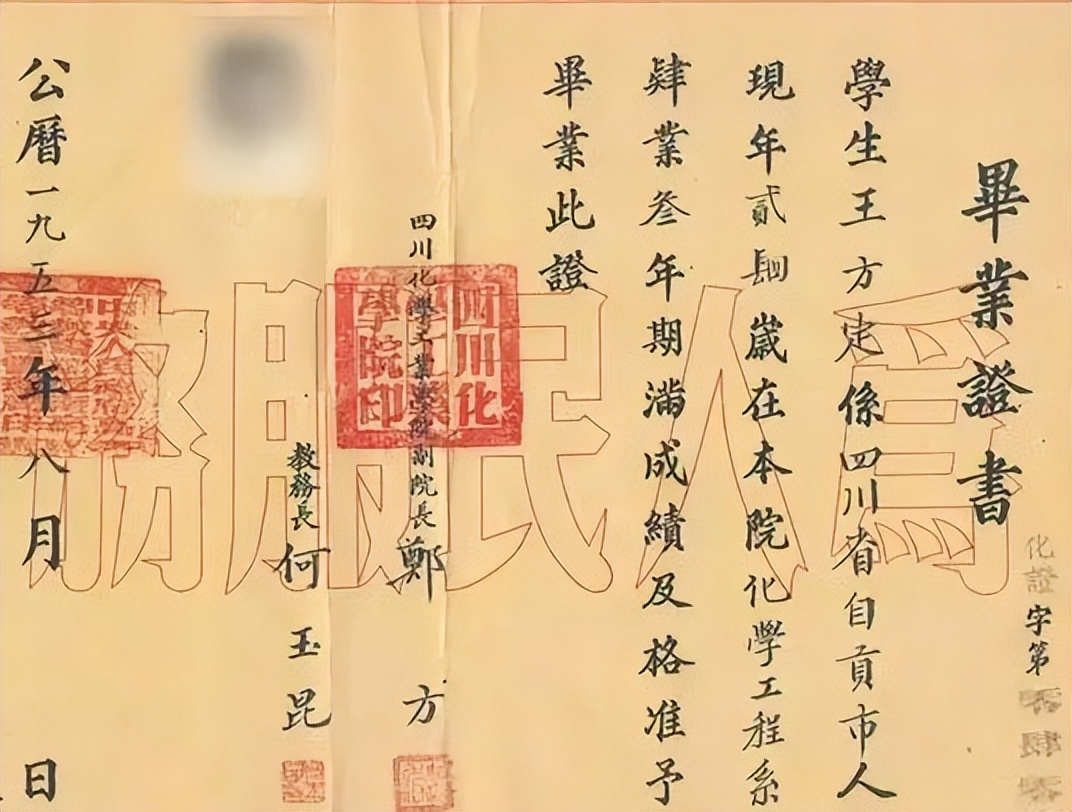 畢業證書
化證字第零肆零
學生王方定係四川省自貢市人
現年貳肆歲在本院化學工程系
肄業叁年期滿成績及格准予
畢業此證
四川化學工業學院副院長 鄭方
教務長 何玉昆
公曆一九五三年八月 日
為人民服務
四川化學工業學院印